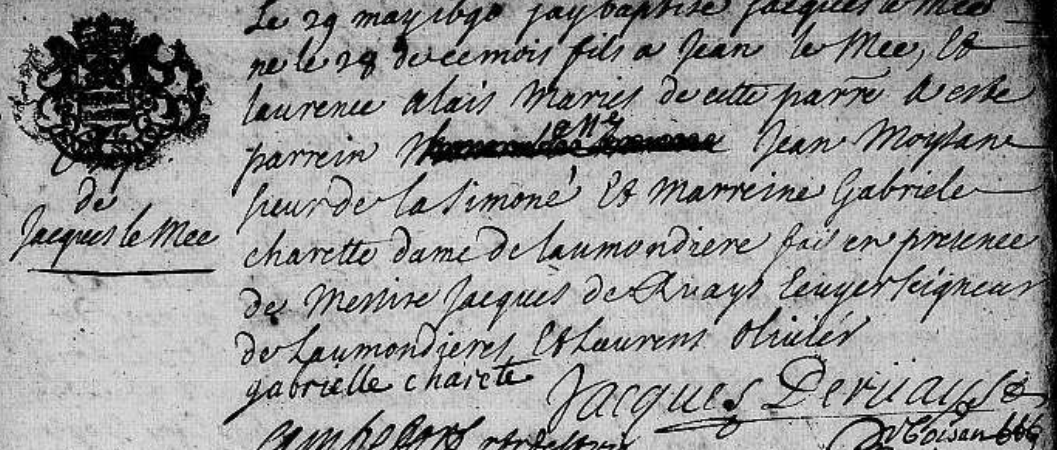 Le 29 may 1690 jay baptisé jacques le Mee
ne le 28 de ce mois fils a Jean le Mee, Et
laurence alais Maries de cette parre A este
parrein Jean Moysane
sieur de la Simone Et Marreine Gabriele
charette dame de laumondiere fait en presence
de Messire Jacques de Ruays Ecuyer Seigneur
de Laumondieres Et Laurens Olivier
gabrielle charete Jacques Deruays
de
Jacques le Mee